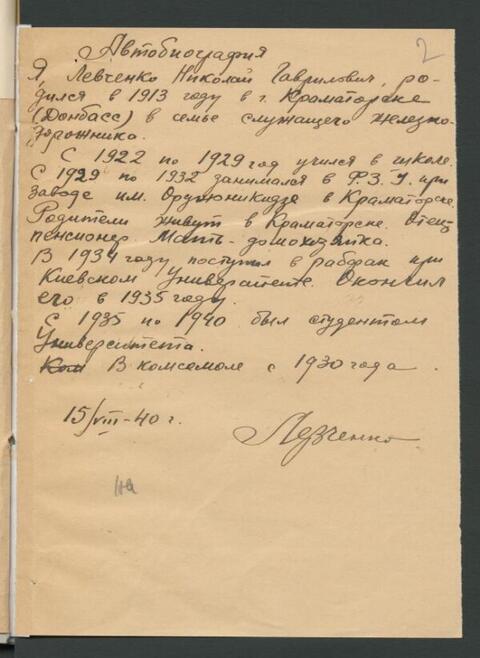 2
Автобиография
Я, Левченко Николай Гаврилович, ро-
дился в 1913 году в г. Краматорске
(Донбасс) в семье служащего железно-
дорожника.
С 1922 по 1929 год учился в школе.
С 1929 по 1932 занимался в Ф.З.У. при
заводе им. Орджоникидзе в Краматорске.
Родители живут в Краматорске. Отец
пенсионер. Мать - домохозяйка.
В 1934 году поступил в рабфак при
Киевском Университете. Окончил
его в 1935 году.
С 1935 по 1940 был студентом
Университета.
Ком В комсомоле с 1930 года.
15/VIII-40 г.
Левченко